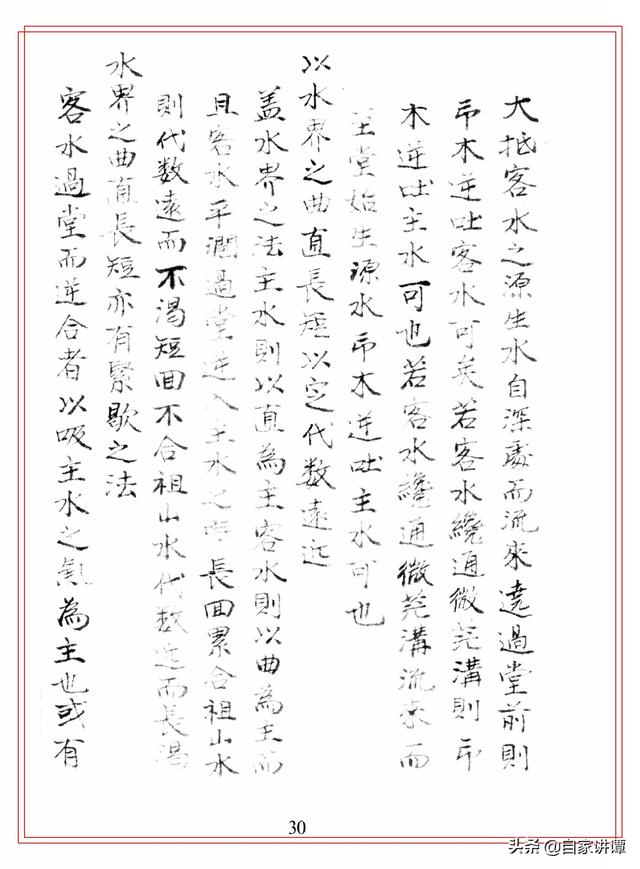 大抵客水之源生水自深處而流來遶過堂前則
帀木逆吐客水可矣若客水纔通微茫溝則帀
木逆吐主水可也若客水纔通微茫溝流來而
至堂始生源水帀木逆吐主水可也
以水界之曲直長短以定代数遠近
盖水界之法主水則以直為主客水則以曲為主而
且客水平濶過堂逆入主水之時長回累合祖山水
則代数遠而不渴短回不合祖山水代数近而長渴
水界之曲直長短亦有緊歇之法
客水過堂而逆合者以吸主水之氣為主也或有
30
头条 @自家讲谭